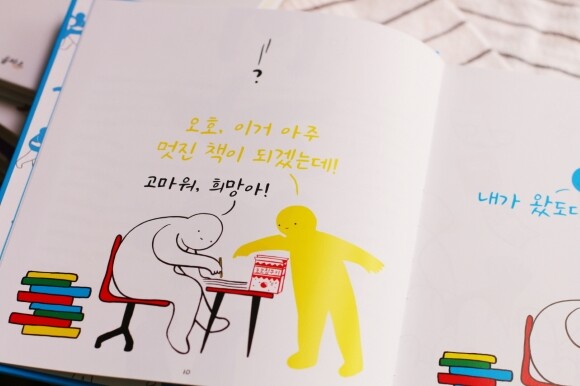 ?
오호, 이거 아주
멋진 책이 되겠는데!
고마워, 희망아!
10
내가 왔도다